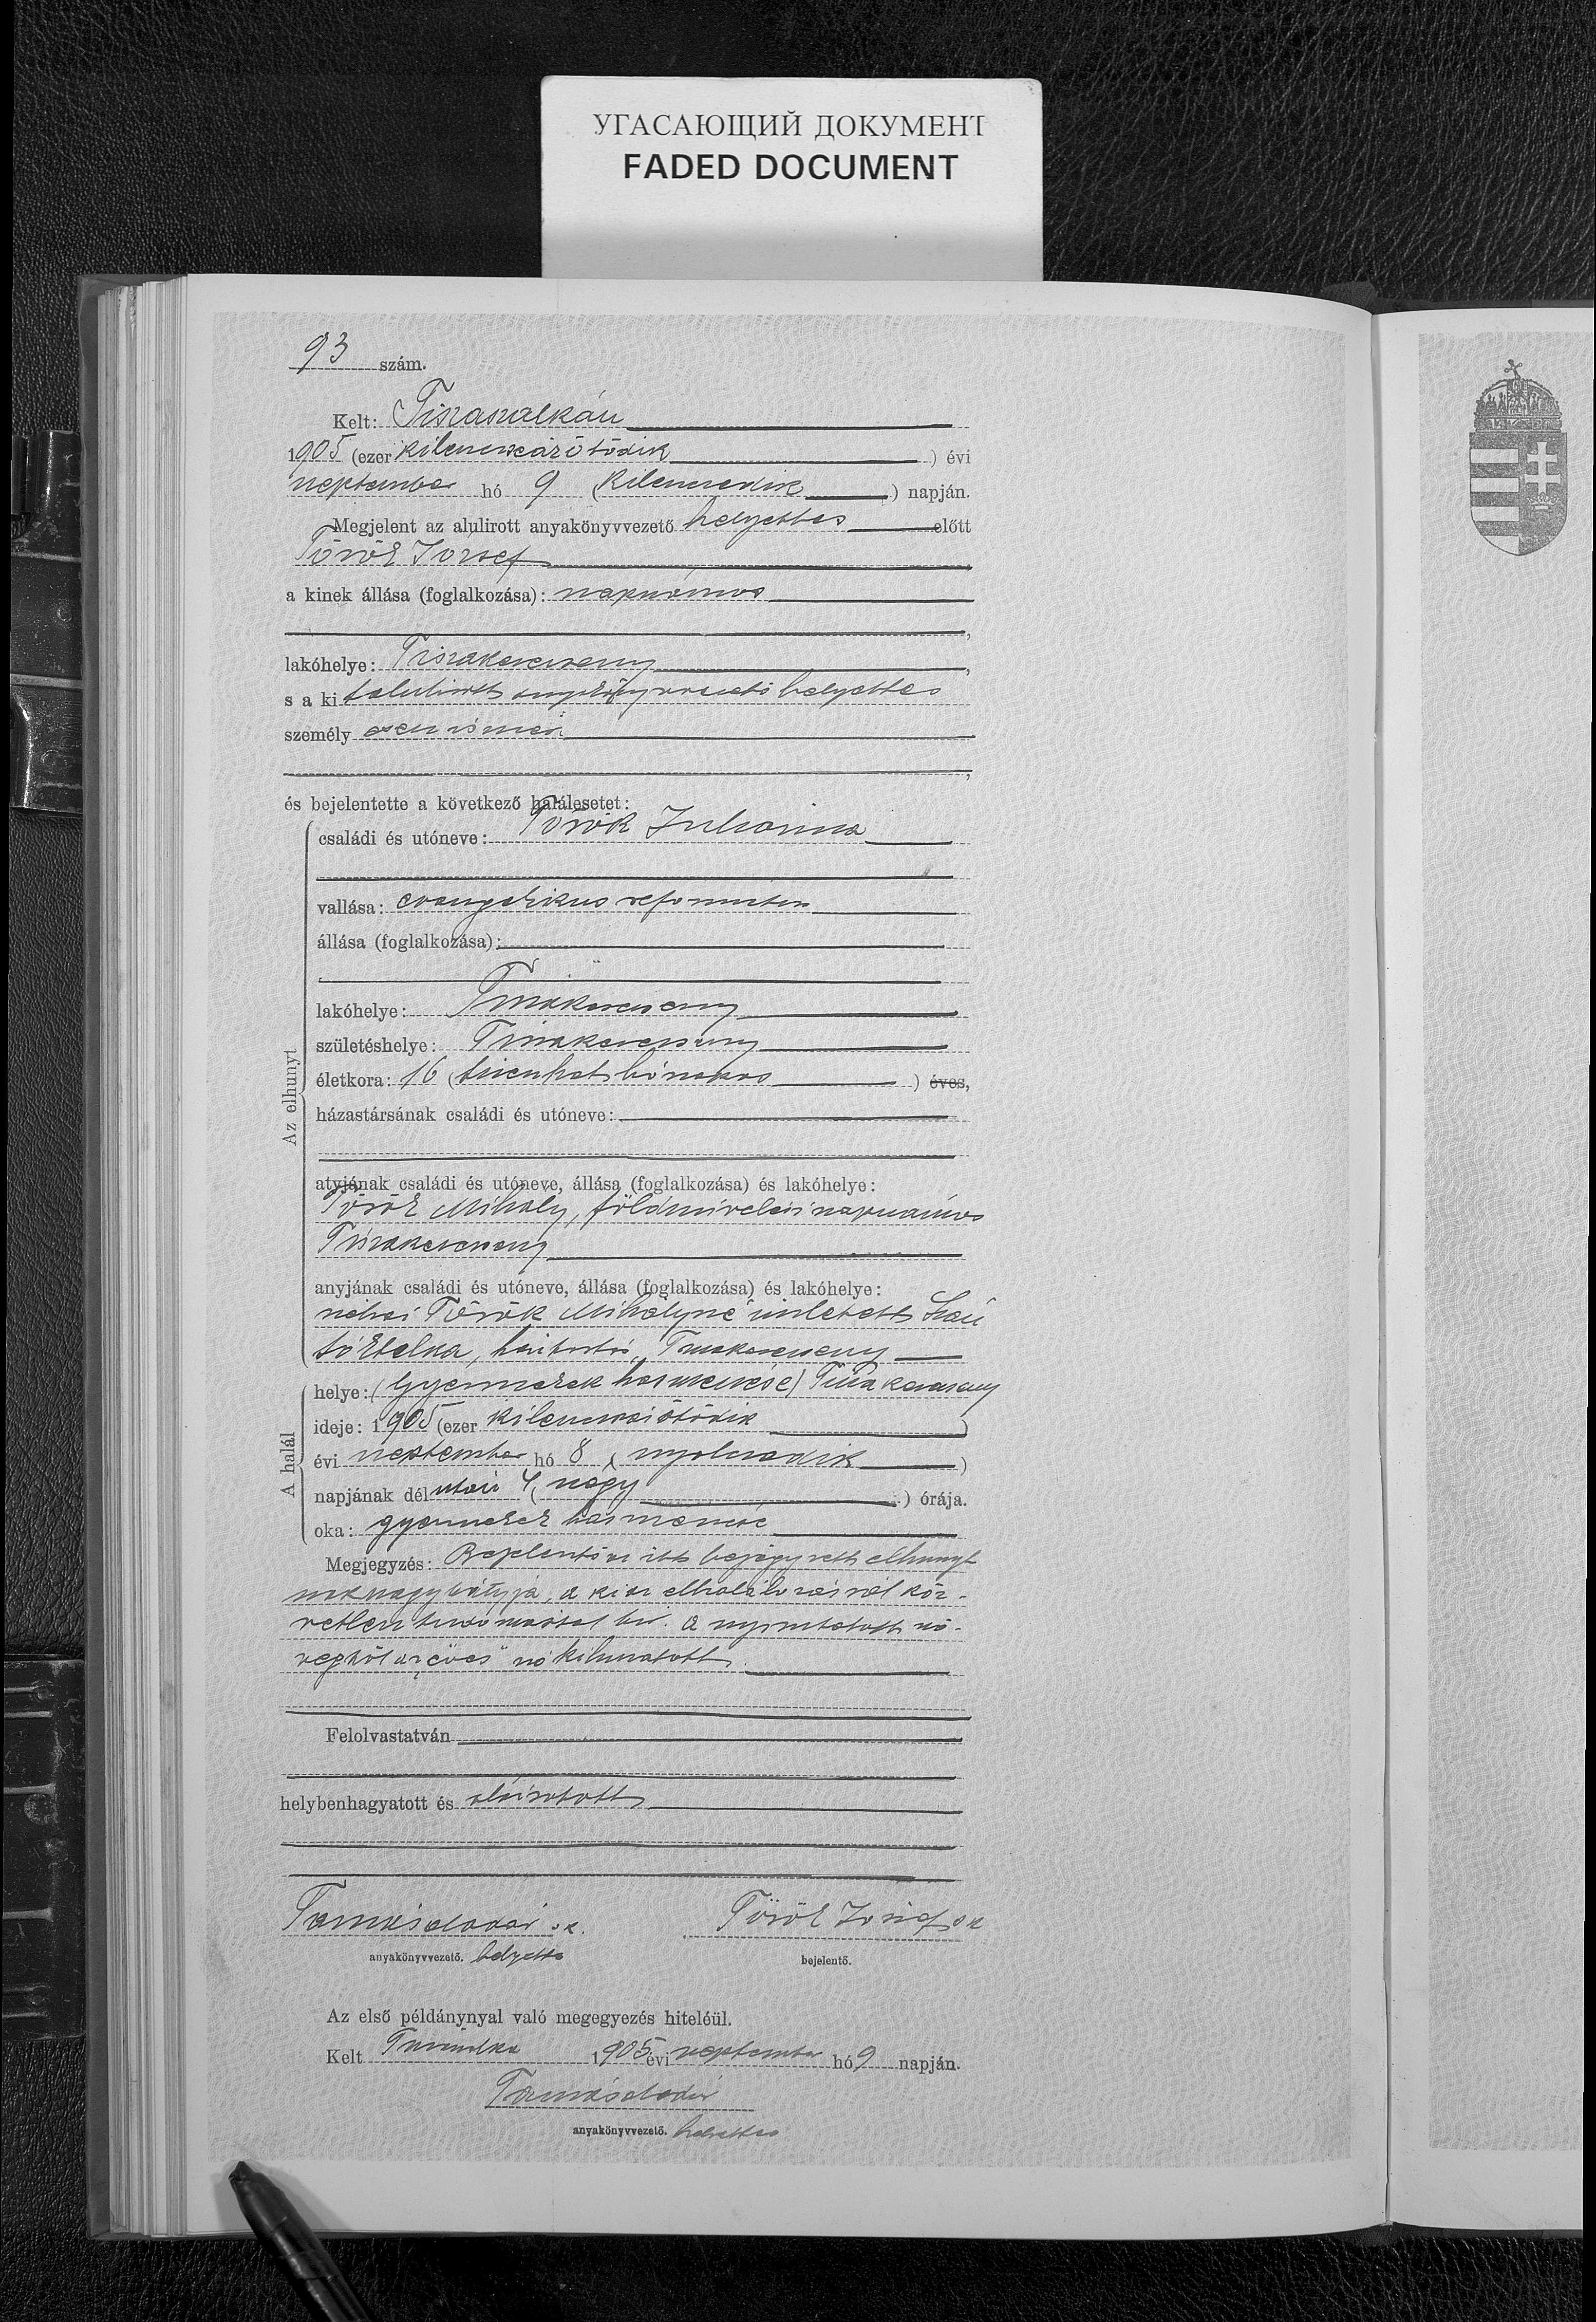 УГАСАЮЩИЙ ДОКУМЕНТ
FADED DOCUMENT
93 szám.
Kelt: Tiszaszalkán
1905 (ezer kilencszázötödik) évi
szeptember hó 9 (kilencedik) napján.
Megjelent az alulirott anyakönyvvezető helyettes előtt
Török József
a kinek állása (foglalkozása): napszámos
lakóhelye: Tiszakerecseny,
s a ki alulirott anyakönyvvezető helyettes
személyesen ismeri
és bejelentette a következő halálesetet:
Az elhunyt
családi és utóneve: Török Julianna
vallása: evangelikus református
állása (foglalkozása):
lakóhelye: Tiszakerecseny
születéshelye: Tiszakerecseny
életkora: 16 (tizenhat hónapos) éves,
házastársának családi és utóneve:
atyjának családi és utóneve, állása (foglalkozása) és lakóhelye:
Török Mihály, földmivelési napszámos
Tiszakerecseny
anyjának családi és utóneve, állása (foglalkozása) és lakóhelye:
néhai Török Mihályné született
háztartás, Tiszakerecseny
A halál
helye: (Gyermekek hasmenése) Tiszakerecseny
ideje: 1905 (ezer kilencszázötödik)
évi szeptember hó 8 (nyolczadik)
napjának délután 4 (négy) órája.
oka: gyermekek hasmenése
Megjegyzés: Bejelentő az itt bejegyzett elhunyt
nak nagybátyja, a ki az elhalálozásról köz-
vetlen tudomással bir. A nyomtatott szö-
vegből az "éves" szó kihuzatott.
Felolvastatván
helybenhagyatott és aláiratott
Tamás sk.
Török József sk
anyakönyvvezető. helyettes
bejelentő.
Az első példánynyal való megegyezés hiteléül.
Kelt Tiszaszalka 1905 évi szeptember hó 9 napján.
Tamás
anyakönyvvezető. helyettes